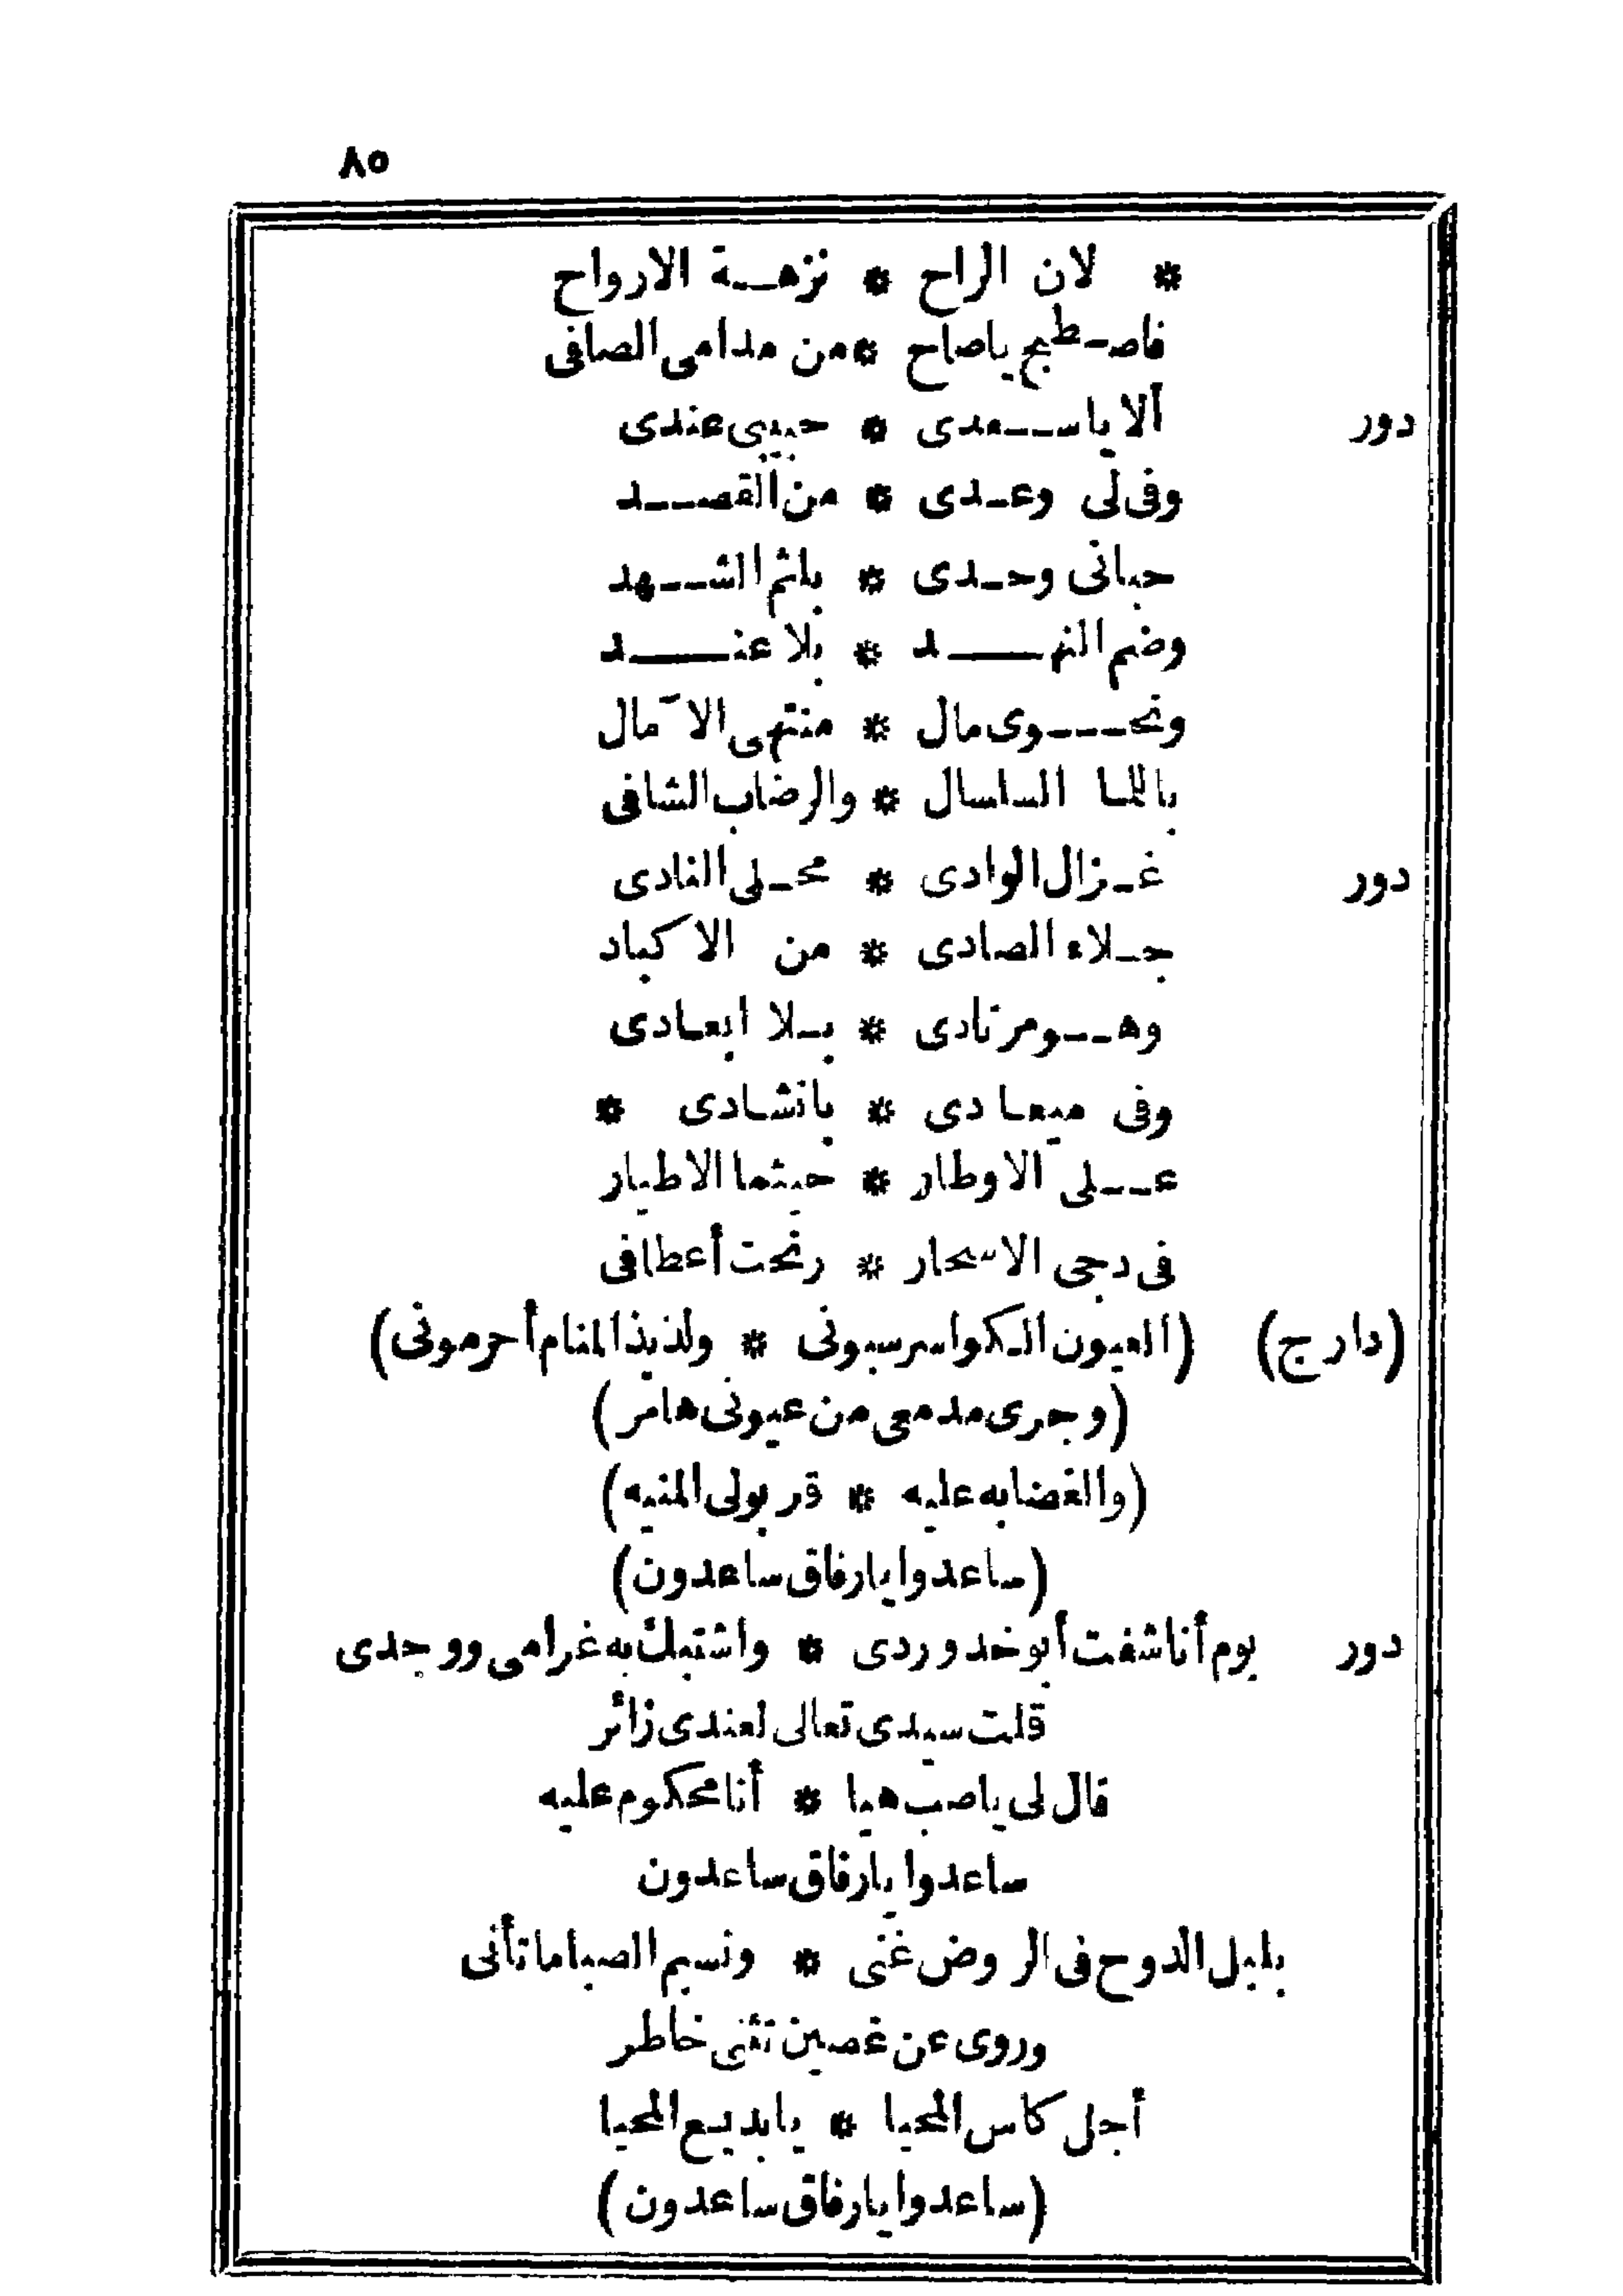 ٨٥
* لان الراح * نزهة الارواح
فاصطبح ياصاح * من مدامى الصافى
دور ألا ياسعدى * حبيبى عندى
وفى لى وعدى * من القصد
حبانى وحدى * بلثم الشهد
وضم النهد * بلا عند
ونحوى مال * منتهى الآمال
باللما السلسال * والرضاب الشافى
دور غزال الوادى * محلى النادى
جلاء الصادى * من الاكباد
وهو مرتادى * بلا ابعادى
وفى ميعادى * بانشادى *
على الاوطار * حيثما الاطيار
فى دجى الاسحار * رنحت أعطافى
(دارج) (العيون الكواسر سبونى * ولذيذ المنام أحرمونى)
(وجرى مدمعى من عيونى هامر)
(والغضابه عليه * قربولى المنيه)
(ساعدوا يارفاق ساعدون)
دور يوم أنا شفت أبو خد وردى * واشتبك به غرامى ووجدى
قلت سيدى تعالى لعندى زائر
قال لى ياصب هيا * أنا محكوم عليه
ساعدوا يارفاق ساعدون
بلبل الدوح فى الروض غنى * ونسيم الصبا ماتأنى
وروى عن غصين تثنى خاطر
أجل كاس المحيا * يابديع المحيا
(ساعدوا يارفاق ساعدون)